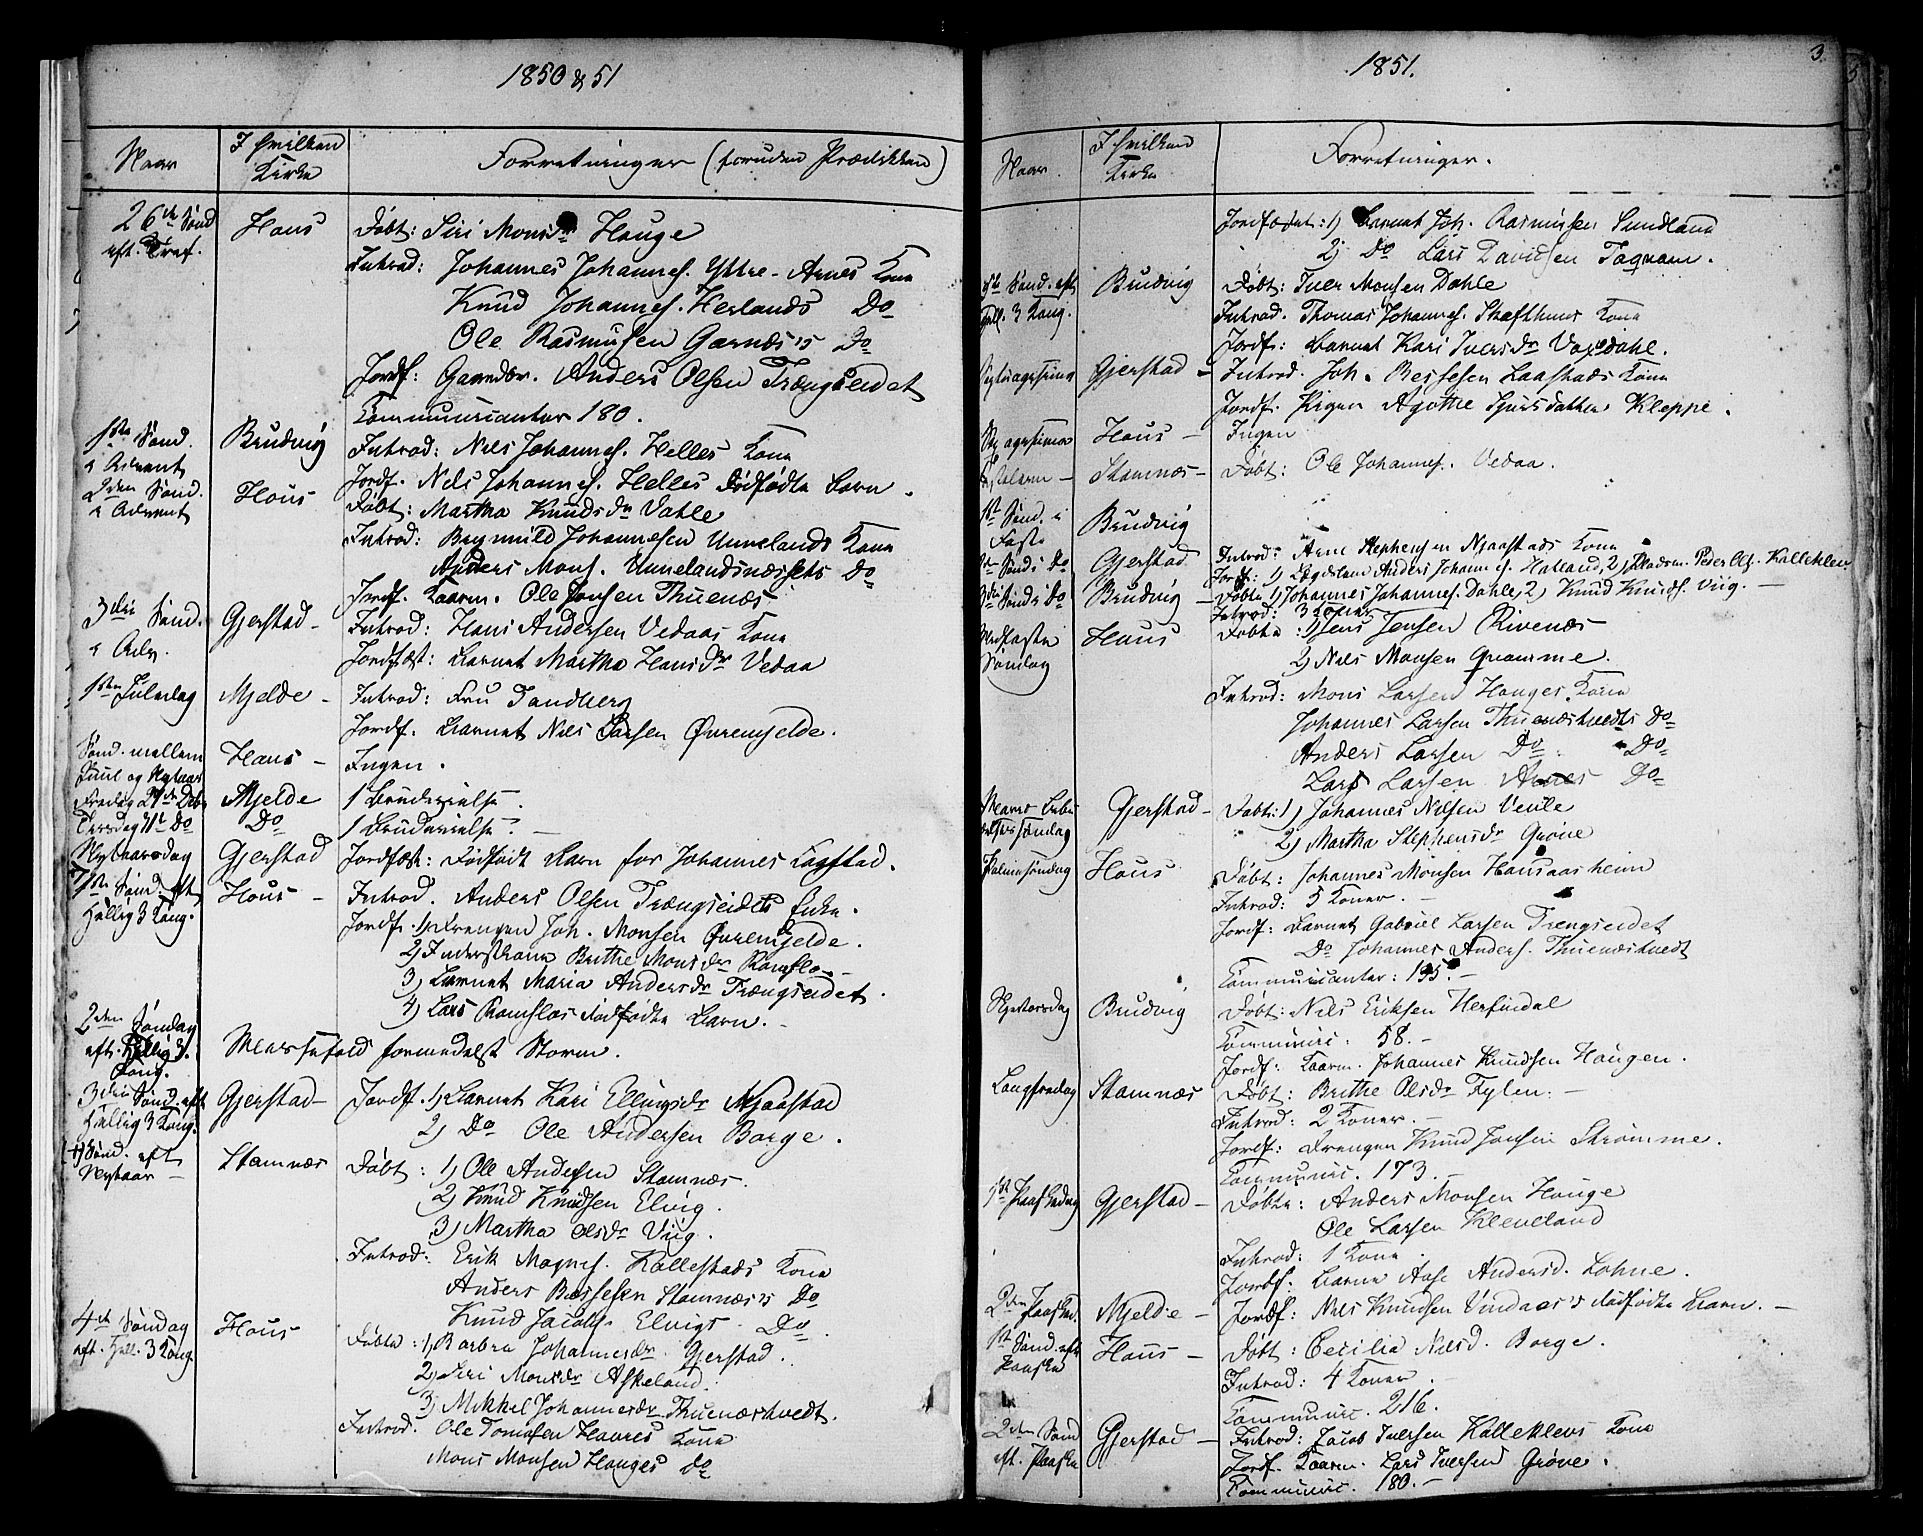 1850 & 51
Naar
I hvilken Kirke
Forretninger (foruden Prædikken)
26de Sønd. eft. Tref.
Hous
Døbt: Siri Monsdr Houge
Introd: Johannes Johannes. Yttre-Arnes Kone
Knud Johannes. Herlands Do
Ole Rasmussen Garnæs's Do
Jordf: Gaardbr. Anders Olsen Trængseidet
Communicanter 180.
1ste Sønd. i Advent
Brudvig
Introd: Nils Johannes. Helles Kone
Jordf. Nils Johannes. Helles dødfødte Barn.
2den Sønd. i Advent
Hous
Døbt: Martha Knudsdr Vatle
Introd: Brynnild Johannesen Unnelands Kone
Anders Mons. Unnelandsnæssets Do
Jordf. Kaarm. Ole Jonsen Thuenæs
3die Sønd. i Adv.
Gjerstad
Introd: Hans Andersen Vedaas Kone
Jordfæst: Barnet Martha Hansdr Vedaa
1ste Juledag
Mjelde
Introd: Fru Sandberg
Jordf. Barnet Nils Larsen Øvremjelde.
Sønd. mellem Juul og Nytaar
Hous
Ingen.
Fredag 27de Deb
Mjelde
1 Brudevielse.
Tirsdag 31t Do
Do
1 Brudevielse.
Nytaarsdag
Gjerstad
Jordfæst: Dødfødt Barn for Johannes Tagstad.
1ste Sønd. eft. Hellig 3 Kong.
Hous
Introd. Anders Olsen Trængseidets Enke.
Jordf. 1) Drengen Joh. Monsen Øvremjelde.
2) Inderstkone Brithe Monsdr Romslo
3) Barnet Maria Andersdr Trængseidet.
4) Lars Romslos dødfødte Barn.
2den Søndag eft. Hellig 3 Kong.
Messefald formedelst Storm.
3die Sønd. eft. Hellig 3 Kong.
Gjerstad
Jordf. 1) Barnet Kari Ellingsdr Njaastad
2) Do Ole Andersen Borge.
Sønd. eft Nytaar
Stamnæs
Døbt: 1) Ole Andersen Stamnæs.
2) Knud Knudsen Elvig.
3) Martha Olsdr Viig.
Introd: Erik Magnes. Kallestads Kone
Anders Bessesen Stamnæs's Do
Knud Jacobs. Elvigs Do
4de Søndag eft. Hell. 3 Kong.
Hous
Døbte: 1) Barbra Johannesdr. Gjerstad.
2) Siri Monsdr Askeland.
3) Mikkel Johannesdr Thuenæstvedt.
Introd. Ole Tomassen Haures Kone
Mons Monsen Houges do
1851.
3
Naar
I hvilken Kirke
Forretninger.
Jordfæstet: 1) Barnet Joh. Rasmussen Sundland
2) Do Lars Davidsen Fagnam.
5te Sønd. eft Hell. 3 Kong.
Brudvig
Døbt: Iver Monsen Dahle
Introd. Thomas Johannes. Skafthuns Kone
Jordf: Barnet Kari Iversdr Vaxdahl.
Gjerstad
Introd. Joh. Bessesen Laastads Kone
Jordf. Pigen Agathe Sjursdatter Kleppe.
Hous
Ingen
Stamnæs
Døbt: Ole Johannes. Vedaa.
1st Sønd. i Faste
Brudvig
2den Sønd i Do
Gjerstad
Introd: Arne Stephensen Njaastads Kone
Jordf: 1) Anders Johannes. Hatland, 2) Peder Ols. Kalleklev
3die Sønd i Do
Brudvig
Døbte 1) Johannes Johannes. Dahle, 2) Knud Knuds. Viig.
Introd: 3 Koner
Midfaste Søndag
Hous
Døbte: 1) Jens Jensen Rivenæs
2) Nils Monsen Qvamme.
Introd: Mons Larsen Houges Kone
Johannes Larsen Thuenæstvedts Do
Anders Larsen Do Do
Lars Larsen Arnes Do
Mariæ Bebudelses Søndag
Gjerstad
Døbt: 1) Johannes Nilsen Vevle
2) Martha Stephensdr Grove
Palmesøndag
Hous
Døbt: Johannes Monsen Hausaasheim
Introd: 5 Koner.
Jordf: Barnet Gabriel Larsen Trengseidet
Do Johannes Anders. Thuenæstvedt
Communicanter: 195.
Skjertorsdag
Brudvig
Døbt: Nils Eriksen Herfindal
Communic: 58.
Jordf: Kaarm. Johannes Knudsen Haugen.
Langfredag
Stamnæs
Døbt: Brithe Olsdr Fylen.
Introd: 2 Koner.
Jordf: Drengen Knud Jonsen Strømme.
Communic. 173.
1ste Paaskedag
Gjerstad
Døbte: Anders Monsen Houge
Ole Larsen Kleveland
Introd: 1 Kone
Jordf: Barne Aase Andersd. Lohne.
2den Paasked.
Mjelde
Jordf: Nils Knudsen Vindaes's dødfødte Barn.
1st Sønd. eft Paaske
Hous
Døbt: Cecilia Nilsd. Borge.
Introd: 4 Koner.
Communic. 216.
2den Sønd eft. Paaske
Gjerstad
Introd: Jacob Iversen Kalleklevs Kone
Jordf. Kaarm. Lars Iversen Grøve.
Communic. 180.